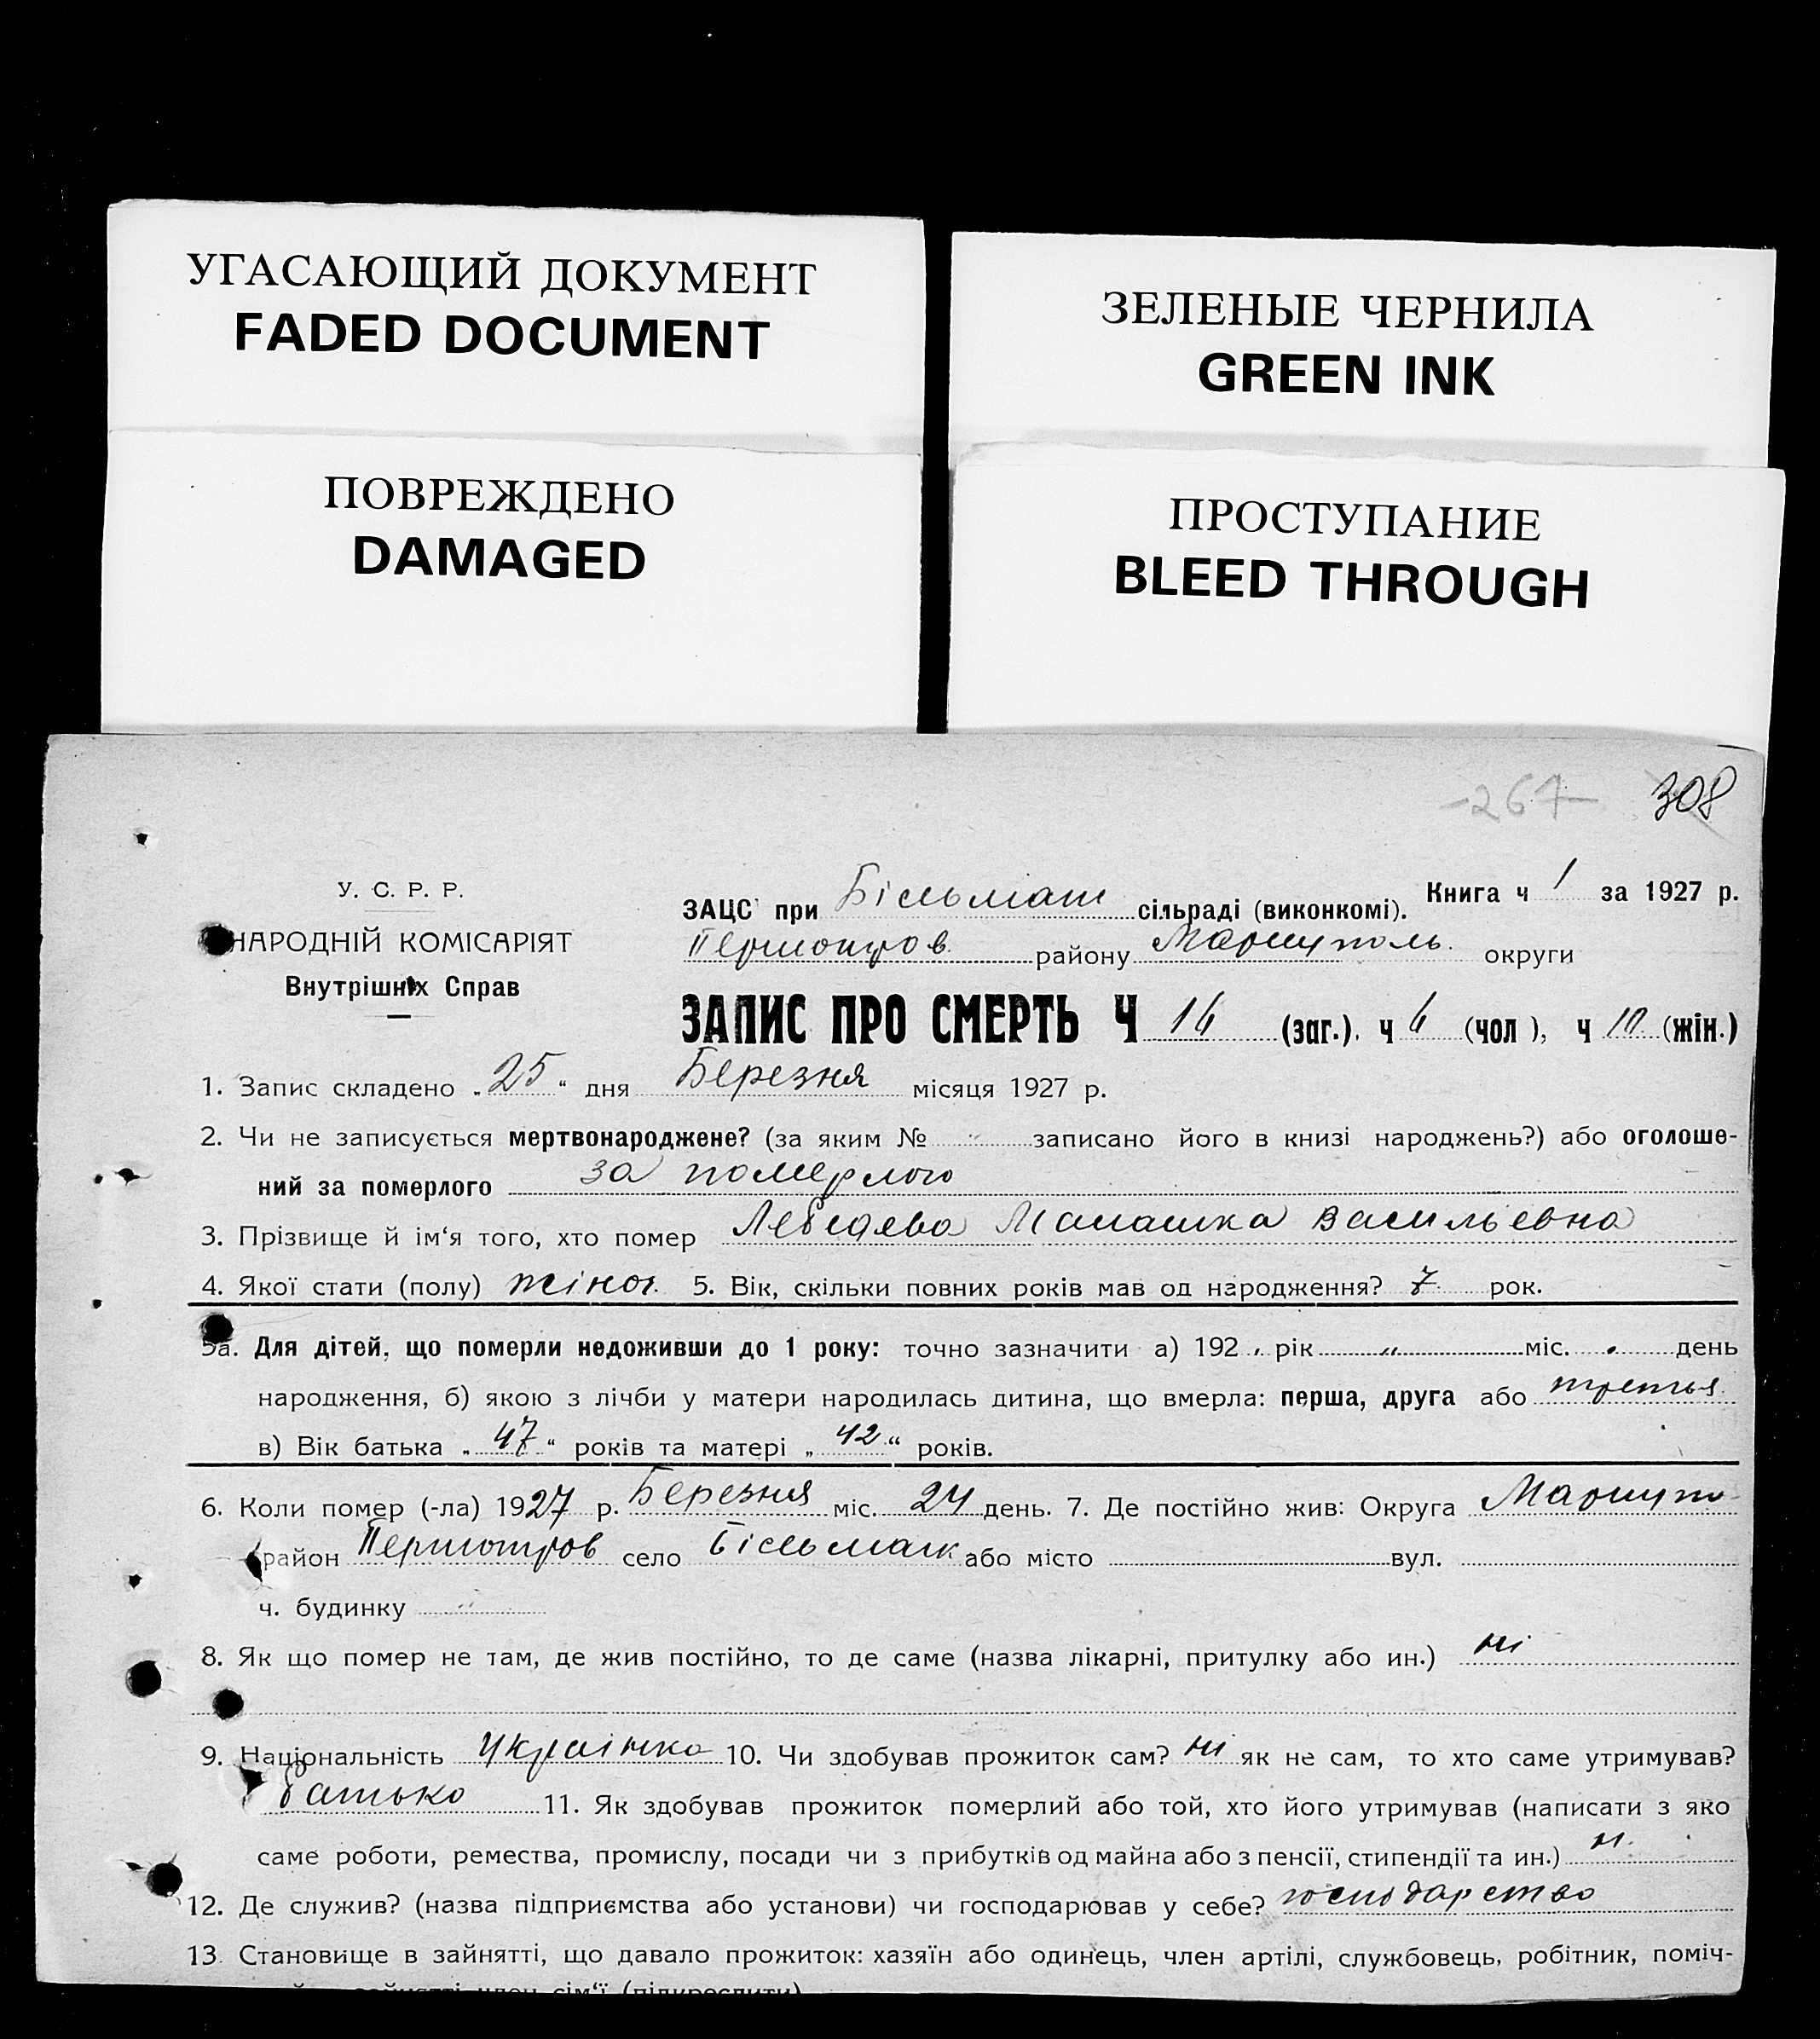 УГАСАЮЩИЙ ДОКУМЕНТ
FADED DOCUMENT
ЗЕЛЕНЫЕ ЧЕРНИЛА
GREEN INK
ПОВРЕЖДЕНО
DAMAGED
ПРОСТУПАНИЕ
BLEED THROUGH
267 308
У. С. Р. Р.
НАРОДНІЙ КОМІСАРІЯТ
Внутрішніх Справ
Книга ч 1 за 1927 р.
ЗАЦС при Більмаш сільраді (виконкомі).
Першотров району Маріуполь округи
ЗАПИС ПРО СМЕРТЬ Ч 16 (заг.), ч 6 (чол), ч 10 (жін.)
1. Запис складено „25“ дня Березня місяця 1927 р.
2. Чи не записується мертвонароджене? (за яким № „ записано його в книзі народжень?) або оголоше-
ний за померлого за померлого
3. Прізвище й ім‘я того, хто помер Лебедева Малашка Васильевна
4. Якої стати (полу) жіноч. 5. Вік, скільки повних років мав од народження? 7 рок.
5а. Для дітей, що померли недоживши до 1 року: точно зазначити а) 192 „ рік „ міс. „ день
народження, б) якою з лічби у матери народилась дитина, що вмерла: перша, друга або третья
в) Вік батька „47“ років та матері „42“ років.
6. Коли помер (-ла) 1927 р. Березня міс. 24 день. 7. Де постійно жив: Округа Мариуп
район Першотров село Більмак або місто вул.
ч. будинку „
8. Як що помер не там, де жив постійно, то де саме (назва лікарні, притулку або ин.) ні
9. Національність Українка 10. Чи здобував прожиток сам? ні як не сам, то хто саме утримував?
батько 11. Як здобував прожиток померлий або той, хто його утримував (написати з яко
саме роботи, ремества, промислу, посади чи з прибутків од майна або з пенсії, стипендії та ин.)
12. Де служив? (назва підприємства або установи) чи господарював у себе? господарство
13 Становище в зайнятті, що давало прожиток: хазяїн або одинець, член артілі, службовець, робітник, поміч-
зайнятті член сім‘ї (підкреслити)